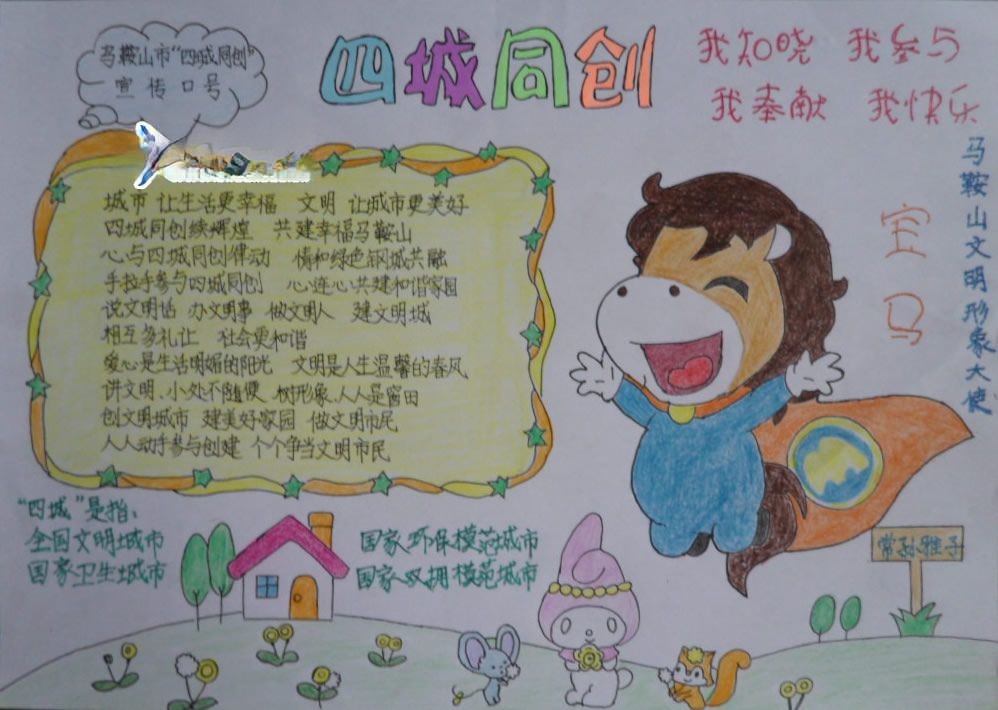 马鞍山市“四城同创”
宣传口号
四城同创
我知晓 我参与
我奉献 我快乐
城市 让生活更幸福 文明 让城市更美好
四城同创续辉煌 共建幸福马鞍山
心与四城同创伴动 情和绿色钢城共融
手拉手参与四城同创 心连心共建和谐家园
说文明话 办文明事 做文明人 建文明城
相互多礼让 社会更和谐
爱心是生活明媚的阳光 文明是人生温馨的春风
讲文明、小处不随便 树形象、人人是窗口
创文明城市 建美好家园 做文明市民
人人动手参与创建 个个争当文明市民
马鞍山文明形象大使
宝马
“四城”是指：
全国文明城市 国家环保模范城市
国家卫生城市 国家双拥模范城市
常孙雅子